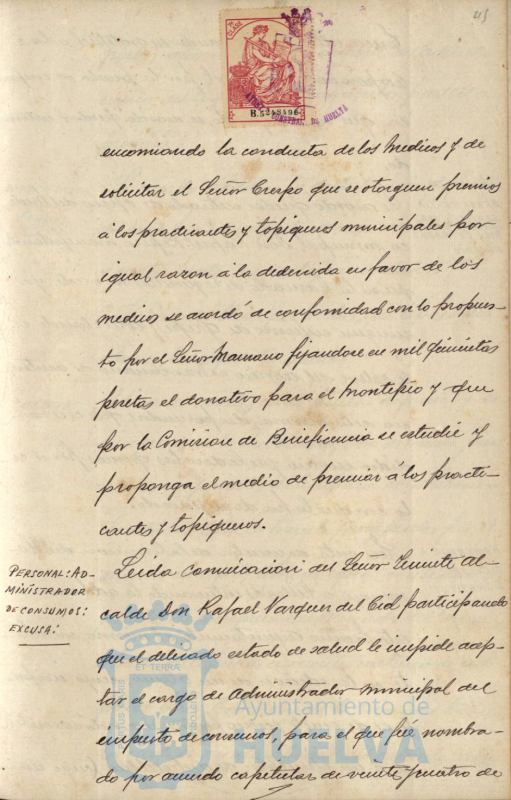 45
11ª CLASE
encomiando la conducta de los Medicos y de
solicitar el Señor Crespo que se otorguen premios
á los practicantes y topiqueros municipales por
igual razon á la deducida en favor de los
medicos se acordó de conformidad con lo propues-
to por el Señor Mamano fijandose en mil quinientas
pesetas el donativo para el Montepío y que
por la Comision de Beneficencia se estudie y
proponga el medio de premiar á los practi-
cantes y topiqueros.
PERSONAL: AD-
MINISTRADOR
DE CONSUMOS:
EXCUSA:
Leida comunicacion del Señor Teniente al-
calde Don Rafael Vazquez del Cid participando
que el delicado estado de salud le impide acep-
tar el cargo de Administrador municipal del
impuesto de consumos, para el que fué nombra-
do por acuerdo capitular de veinte y cuatro de
Ayuntamiento de
HUELVA